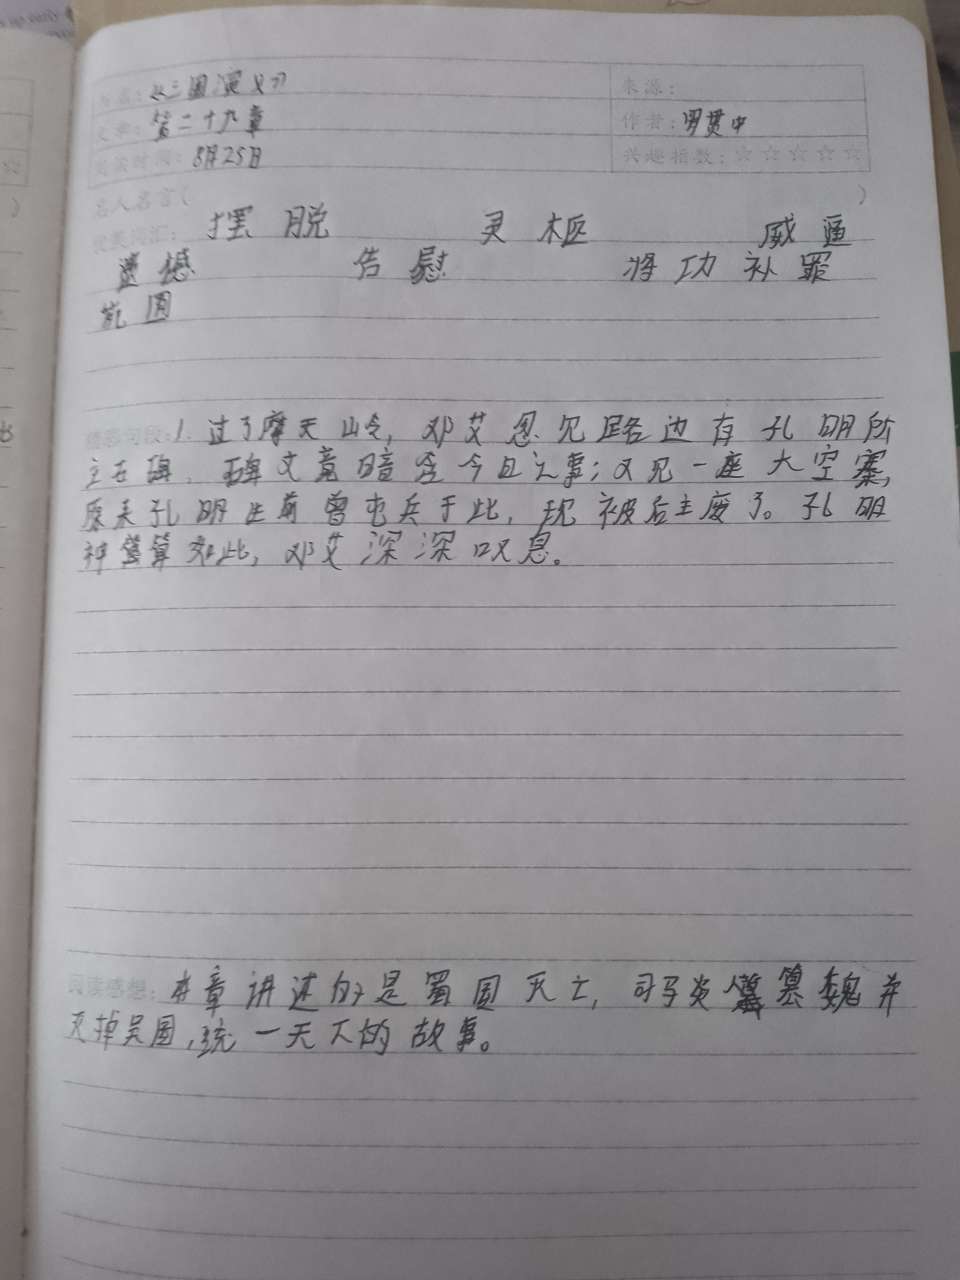 书名：《三国演义》
来源：
文章：第二十九章
作者：罗贯中
阅读时间：8月25日
兴趣指数：☆☆☆☆☆
名人名言（ ）
优美词汇：摆脱 灵柩 威逼
遗憾 告慰 将功补罪
氛围
精彩句段：1. 过了摩天岭，邓艾忽见路边有孔明所
立石碑，碑文竟暗含今日之事；又见一座大空寨，
原来孔明生前曾屯兵于此，现被后主废了。孔明
神算如此，邓艾深深叹息。
阅读感想：本章讲述的是蜀国灭亡，司马炎篡魏并
灭掉吴国，统一天下的故事。